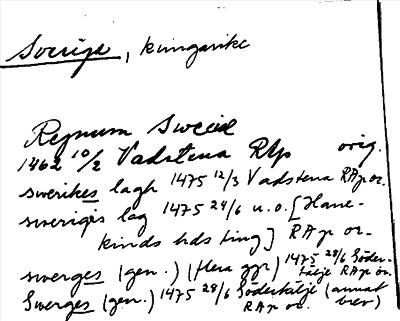 Sverige, kungarike
Regnum Sweciæ
1462 10/2 Vadstena RAp orig.
swerikes lagh 1475 12/3 Vadstena RAp or.
sweriges lag 1475 24/6 u.o. [Hane-
kinds hds ting] RAp or.
swerges (gen.) (flera ggr) 1475 28/6 Söder-
tälje RAp or.
Swerges (gen.) 1475 28/6 Södertälje (annat
RAp or. brev)